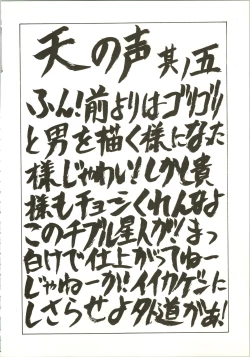 天の声 其ノ五
ふん！前よりはゴリゴリ
と男を描く様になった
様じゃわい！しかし貴
様もチョーシくれんなよ
このチブル星人が！まっ
白けで仕上がってねー
じゃねーか！！イイカゲンに
しさらせよ外道があ！